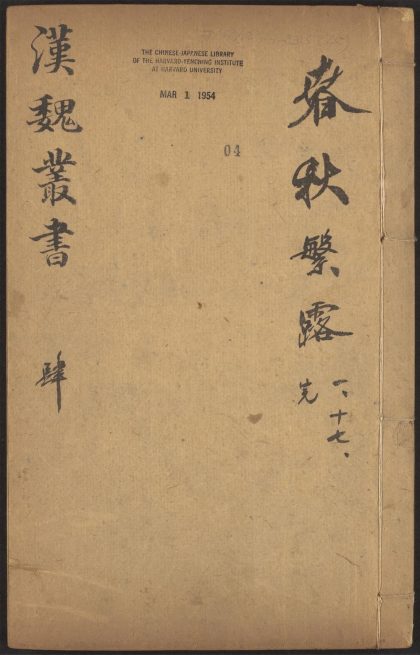 漢魏叢書 肆
THE CHINESE-JAPANESE LIBRARY
OF THE HARVARD-YENCHING INSTITUTE
AT HARVARD UNIVERSITY
MAR 1 1954
04
春秋繁露
一、十七、
完